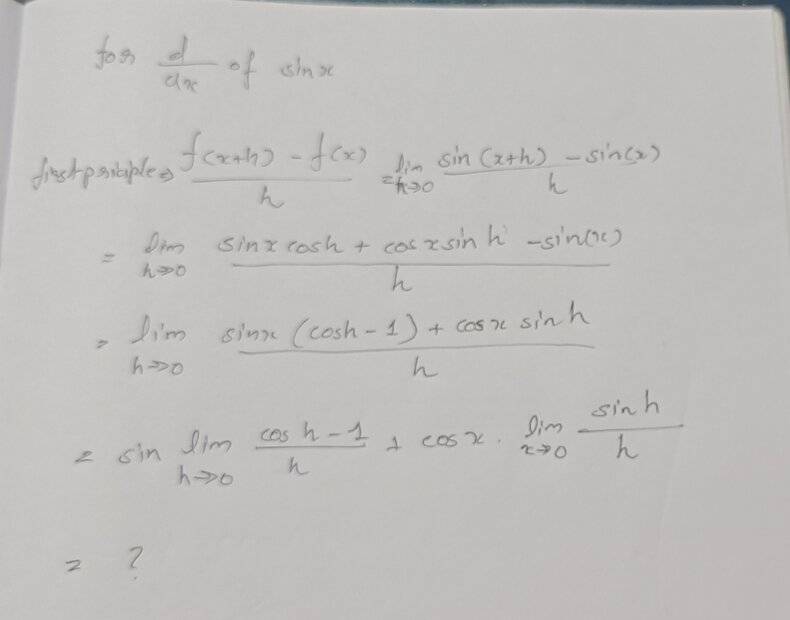 for d/dx of sinx
first principle ⇒ f(x+h) - f(x) / h = lim h→0 sin(x+h) - sin(x) / h
= lim h→0 sinx cosh + cosx sinh - sin(x) / h
= lim h→0 sinx (cosh - 1) + cosx sinh / h
= sin lim h→0 cos h - 1 / h + cosx . lim x→0 sinh / h
= ?